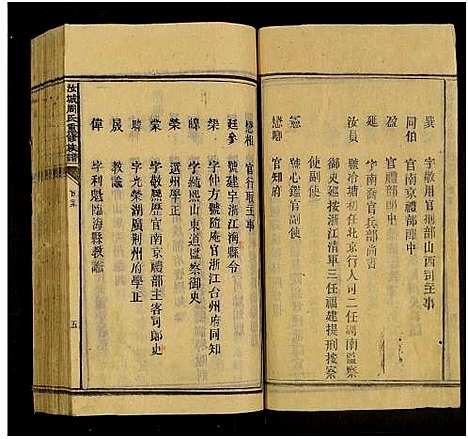 巽 字敬用官刑部山西司主事
同伯 官南京禮部郎中
盈 官禮部郎中
延 字南喬官兵部尚書
汝員 號冶塘初任北京行人司二任湖南監察
御史建按浙江清軍三任福建提刑按察
使副使
憲 號心鑑官副使
懋卿 官知府
懋相 官行取主事
廷參 號建宇浙江海縣令
榘 字仲方號随庵官浙江台州府同知
暐 字純熙山東道監察御史
榮 選州學正
棠 字敬熙歷官南京禮部主客司郎吏
曄 字光榮湖廣荆州府學正
晟 教諭
偉 字利魁臨海縣教諭
汝城周氏重修族譜
五